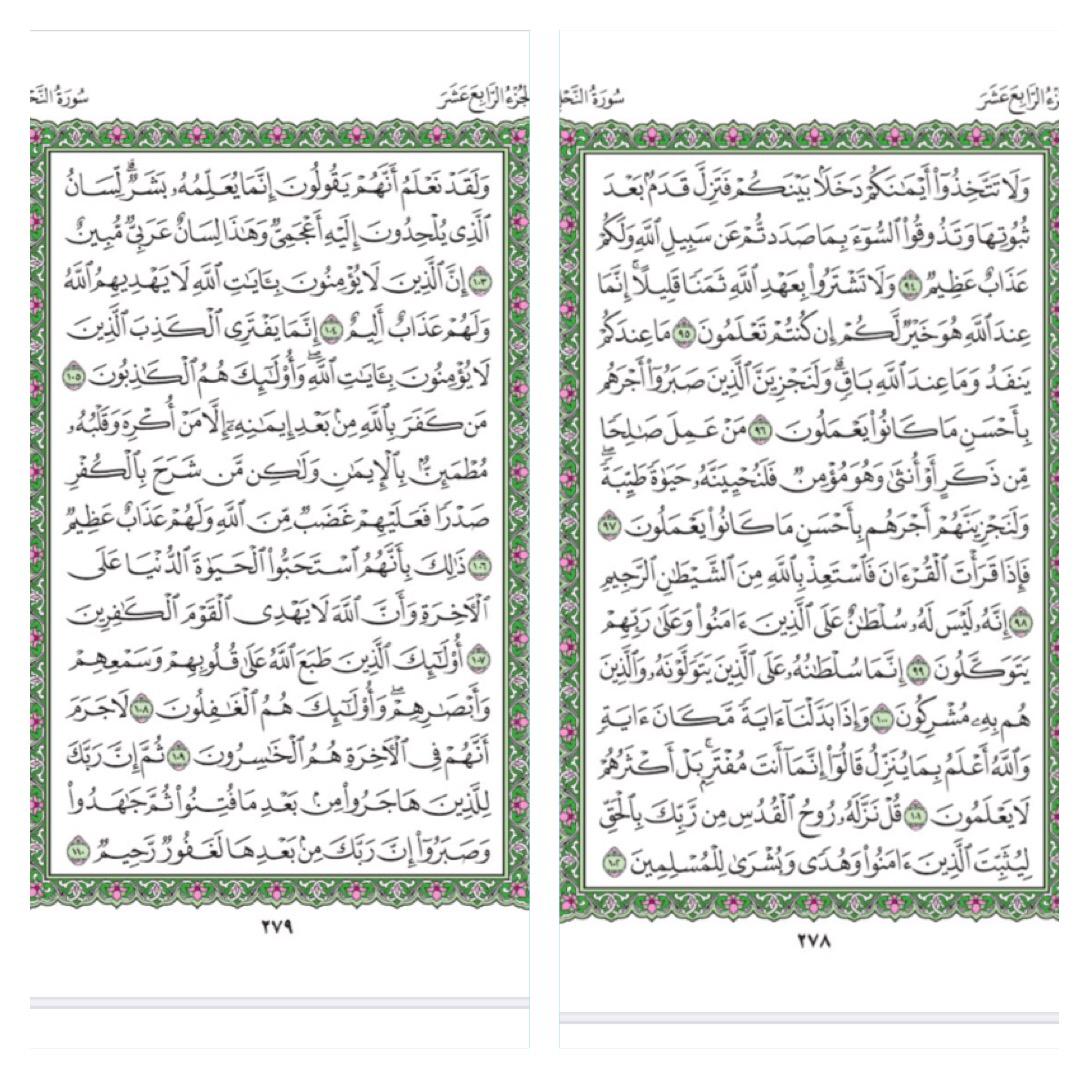 سُورَةُ النَّحۡ
ٱلرَّابِعَ عَشَرَ
وَلَا تَتَّخِذُوٓاْ أَيۡمَٰنَكُمۡ دَخَلَۢا بَيۡنَكُمۡ فَتَزِلَّ قَدَمُۢ بَعۡدَ
ثُبُوتِهَا وَتَذُوقُواْ ٱلسُّوٓءَ بِمَا صَدَدتُّمۡ عَن سَبِيلِ ٱللَّهِ وَلَكُمۡ
عَذَابٌ عَظِيمٞ ٩٤ وَلَا تَشۡتَرُواْ بِعَهۡدِ ٱللَّهِ ثَمَنٗا قَلِيلًاۚ إِنَّمَا
عِندَ ٱللَّهِ هُوَ خَيۡرٞ لَّكُمۡ إِن كُنتُمۡ تَعۡلَمُونَ ٩٥ مَا عِندَكُمۡ
يَنفَدُ وَمَا عِندَ ٱللَّهِ بَاقٖۗ وَلَنَجۡزِيَنَّ ٱلَّذِينَ صَبَرُوٓاْ أَجۡرَهُم
بِأَحۡسَنِ مَا كَانُواْ يَعۡمَلُونَ ٩٦ مَنۡ عَمِلَ صَٰلِحٗا
مِّن ذَكَرٍ أَوۡ أُنثَىٰ وَهُوَ مُؤۡمِنٞ فَلَنُحۡيِيَنَّهُۥ حَيَوٰةٗ طَيِّبَةٗۖ
وَلَنَجۡزِيَنَّهُمۡ أَجۡرَهُم بِأَحۡسَنِ مَا كَانُواْ يَعۡمَلُونَ ٩٧
فَإِذَا قَرَأۡتَ ٱلۡقُرۡءَانَ فَٱسۡتَعِذۡ بِٱللَّهِ مِنَ ٱلشَّيۡطَٰنِ ٱلرَّجِيمِ
٩٨ إِنَّهُۥ لَيۡسَ لَهُۥ سُلۡطَٰنٌ عَلَى ٱلَّذِينَ ءَامَنُواْ وَعَلَىٰ رَبِّهِمۡ
يَتَوَكَّلُونَ ٩٩ إِنَّمَا سُلۡطَٰنُهُۥ عَلَى ٱلَّذِينَ يَتَوَلَّوۡنَهُۥ وَٱلَّذِينَ
هُم بِهِۦ مُشۡرِكُونَ ١٠٠ وَإِذَا بَدَّلۡنَآ ءَايَةٗ مَّكَانَ ءَايَةٖ
وَٱللَّهُ أَعۡلَمُ بِمَا يُنَزِّلُ قَالُوٓاْ إِنَّمَآ أَنتَ مُفۡتَرِۭۚ بَلۡ أَكۡثَرُهُمۡ
لَا يَعۡلَمُونَ ١٠١ قُلۡ نَزَّلَهُۥ رُوحُ ٱلۡقُدُسِ مِن رَّبِّكَ بِٱلۡحَقِّ
لِيُثَبِّتَ ٱلَّذِينَ ءَامَنُواْ وَهُدٗى وَبُشۡرَىٰ لِلۡمُسۡلِمِينَ ١٠٢
٢٧٨
سُورَةُ النَّحۡ
ٱلرَّابِعَ عَشَرَ
وَلَقَدۡ نَعۡلَمُ أَنَّهُمۡ يَقُولُونَ إِنَّمَا يُعَلِّمُهُۥ بَشَرٞۗ لِّسَانُ
ٱلَّذِي يُلۡحِدُونَ إِلَيۡهِ أَعۡجَمِيّٞ وَهَٰذَا لِسَانٌ عَرَبِيّٞ مُّبِينٌ
١٠٣ إِنَّ ٱلَّذِينَ لَا يُؤۡمِنُونَ بِـَٔايَٰتِ ٱللَّهِ لَا يَهۡدِيهِمُ ٱللَّهُ
وَلَهُمۡ عَذَابٌ أَلِيمٌ ١٠٤ إِنَّمَا يَفۡتَرِي ٱلۡكَذِبَ ٱلَّذِينَ
لَا يُؤۡمِنُونَ بِـَٔايَٰتِ ٱللَّهِۖ وَأُوْلَٰٓئِكَ هُمُ ٱلۡكَٰذِبُونَ ١٠٥
مَن كَفَرَ بِٱللَّهِ مِنۢ بَعۡدِ إِيمَٰنِهِۦٓ إِلَّا مَنۡ أُكۡرِهَ وَقَلۡبُهُۥ
مُطۡمَئِنُّۢ بِٱلۡإِيمَٰنِ وَلَٰكِن مَّن شَرَحَ بِٱلۡكُفۡرِ
صَدۡرٗا فَعَلَيۡهِمۡ غَضَبٞ مِّنَ ٱللَّهِ وَلَهُمۡ عَذَابٌ عَظِيمٞ
١٠٦ ذَٰلِكَ بِأَنَّهُمُ ٱسۡتَحَبُّواْ ٱلۡحَيَوٰةَ ٱلدُّنۡيَا عَلَى
ٱلۡأٓخِرَةِ وَأَنَّ ٱللَّهَ لَا يَهۡدِي ٱلۡقَوۡمَ ٱلۡكَٰفِرِينَ
١٠٧ أُوْلَٰٓئِكَ ٱلَّذِينَ طَبَعَ ٱللَّهُ عَلَىٰ قُلُوبِهِمۡ وَسَمۡعِهِمۡ
وَأَبۡصَٰرِهِمۡۖ وَأُوْلَٰٓئِكَ هُمُ ٱلۡغَٰفِلُونَ ١٠٨ لَا جَرَمَ
أَنَّهُمۡ فِي ٱلۡأٓخِرَةِ هُمُ ٱلۡخَٰسِرُونَ ١٠٩ ثُمَّ إِنَّ رَبَّكَ
لِلَّذِينَ هَاجَرُواْ مِنۢ بَعۡدِ مَا فُتِنُواْ ثُمَّ جَٰهَدُواْ
وَصَبَرُوٓاْ إِنَّ رَبَّكَ مِنۢ بَعۡدِهَا لَغَفُورٞ رَّحِيمٞ ١١٠
٢٧٩